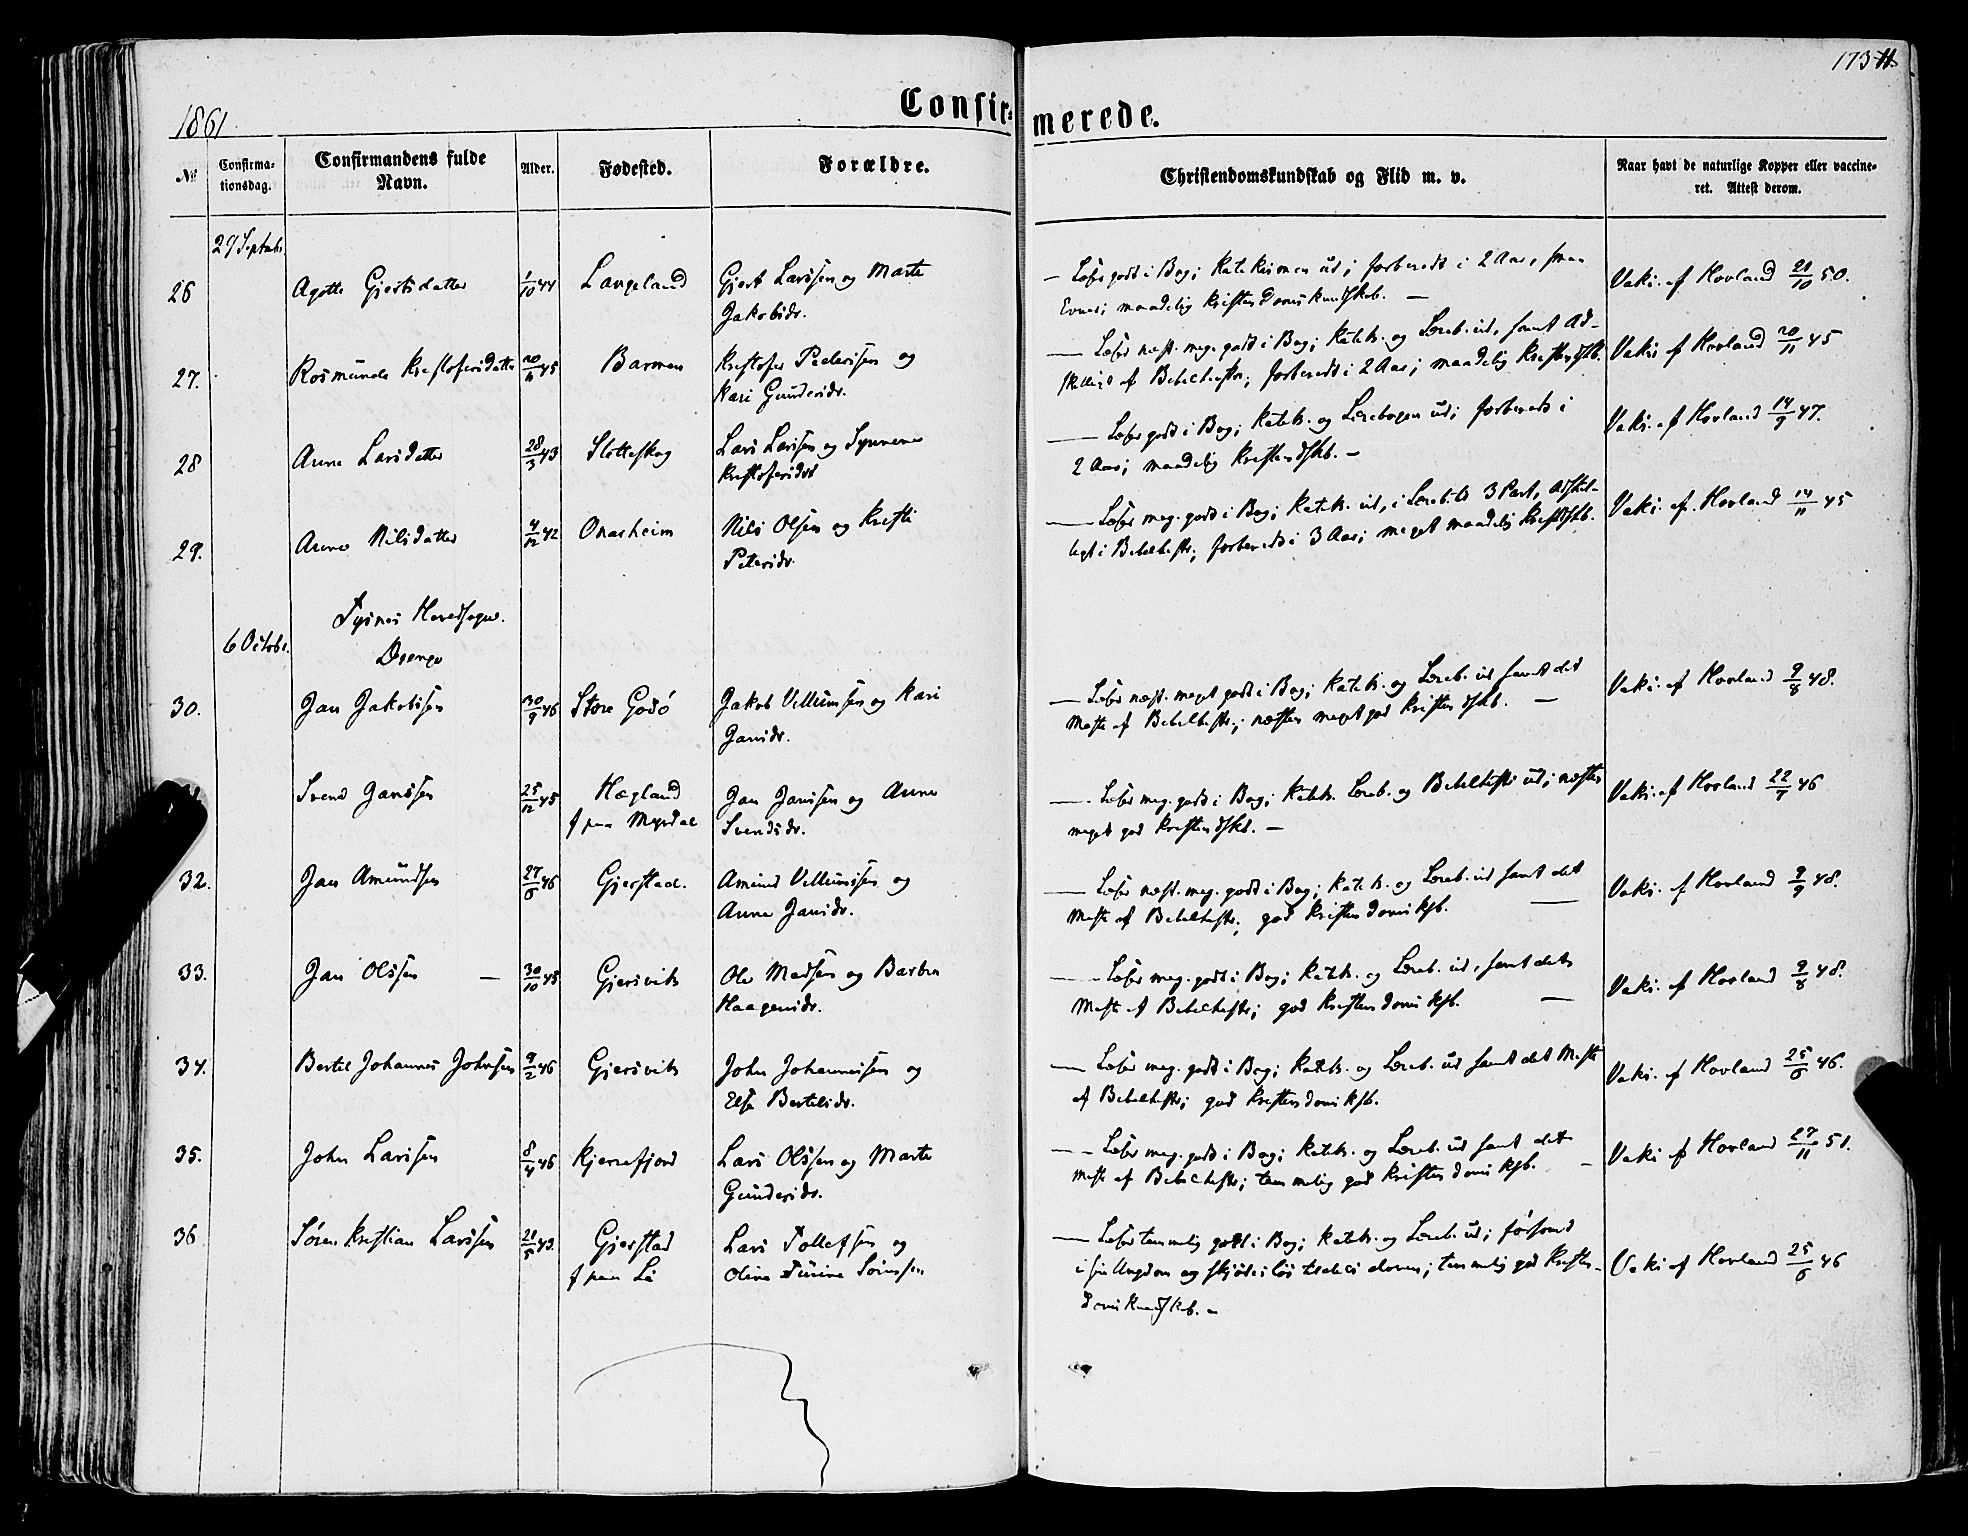 1861
Confirmerede.
173
№
Confirmationsdag.
Confirmandens fulde Navn.
Alder.
Fødested.
Forældre.
Christendomskundskab og Flid m. v.
Naar havt de naturlige Kopper eller vaccineret. Attest derom.
29 Septmbr.
26 Agotte Gjertsdatter 1/10 44 Langeland Gjert Larssen og Marta
Jakobsdr.
— Læser godt i Bog; Katekismen ud; forberedt i 2 Aar, smaa
Evner; maadelig Kristendomskundskab. —
Vaks. af Hovland 21/10 50.
27. Rosmunda Kristofersdatter 20/6 45 Barmen Kristofer Pedersen og
Kari Gundersdr.
— Læser næst. meg. godt i Bog; Katek. og Læreb. ud, samt Ad-
skilligt af Bibelhistr.; forberedt i 2 Aar; maadelig Kristendskb.
Vaks. af Hovland 20/11 45
28 Anna Larsdatter 28/3 43 Slotteskog Lars Larssen og Synneva
Kristofersdtr
— Læser godt i Bog; Katek. og Lærebogen ud; forberedt i
2 Aar; maadelig Kristendskb. —
Vaks. af Hovland 14/9 47.
29. Anna Nilsdatter 4/12 42 Onarheim Nils Olsen og Kristi
Petersdr.
— Læser meg. godt i Bog; Katek. ud, i Læreb. til 3 Part, Adskil-
ligt i Bibelhistr.; forberedt i 3 Aar; meget maadelig Kristdskb.
Vaks. af Hovland 14/11 45
Tysnes Hovedsogn.
6 Octobr.
Drenge
30. Jan Jakobssen 30/9 46 Store Godø Jakob Villumsen og Kari
Jansdr.
— Læser næst. meget godt i Bog; Katek. og Læreb. ud samt det
Meste af Bibelhistr.; næsten meget god Kristendskb. —
Vaks. af Hovland 9/8 48.
Svend Janssen 25/12 45 Hægland Jan Janssen og Anna
f paa Myrdal Svendsdr.
— Læser meg. godt i Bog; Katek. Læreb. og Bibelhistr. ud; næsten
meget god Kristendskb. —
Vaks. af Hovland 22/7 46
32. Jan Amundsen 27/6 46 Gjerstad. Amund Villumssen og
Anna Jansdr.
— Læser næst. meg. godt i Bog; Katek. og Læreb. ud samt det
Meste af Bibelhistr.; god Kristendomsksb. —
Vaks. af Hovland 9/9 48.
33. Jan Olssen — 30/10 45 Gjersvik Ole Madsen og Barbra
Haagensdr.
— Læser meg. godt i Bog; Katek. og Læreb. ud, samt det
Meste af Bibelhistr.; god Kristendomsksb. —
Vaks. af Hovland 9/8 48.
34. Bertil Johannes Johnsen 9/2 46 Gjersvik John Johannessen og
Elsa Bertilsdr.
— Læser meg. godt i Bog; Katek. og Læreb. ud samt det Meste
af Bibelhistr.; god Kristendomsksb.
Vaks. af Hovland 25/6 46.
35. John Larssen 8/4 46 Kjerrefjord Lars Olssen og Marta
Gundersdr.
— Læser meg. godt i Bog; Katek. og Læreb. ud samt det
Meste af Bibelhistr.; temmelig god Kristendomsksb. —
Vaks af Hovland 27/11 51.
36 Søren Kristian Larssen 21/5 43. Gjerstad Lars Tollefsen og
f paa Lø Olina Turina Sørnssen
— Læser temmelig godt i Bog; Katek. og Læreb. ud; forsømt
i sin Ungdom og temmelig god Kristen-
domskundskab. —
Vaks af Hovland 25/6 46